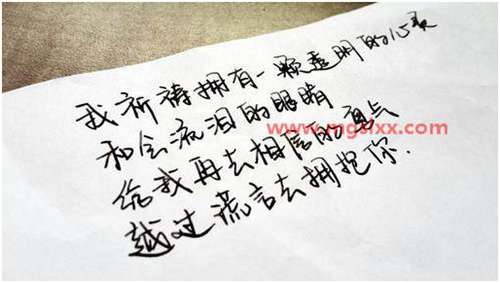 我祈祷拥有一颗透明的心灵
和会流泪的眼睛
www.mgslxx.com
给我再去相信的勇气
越过谎言去拥抱你.